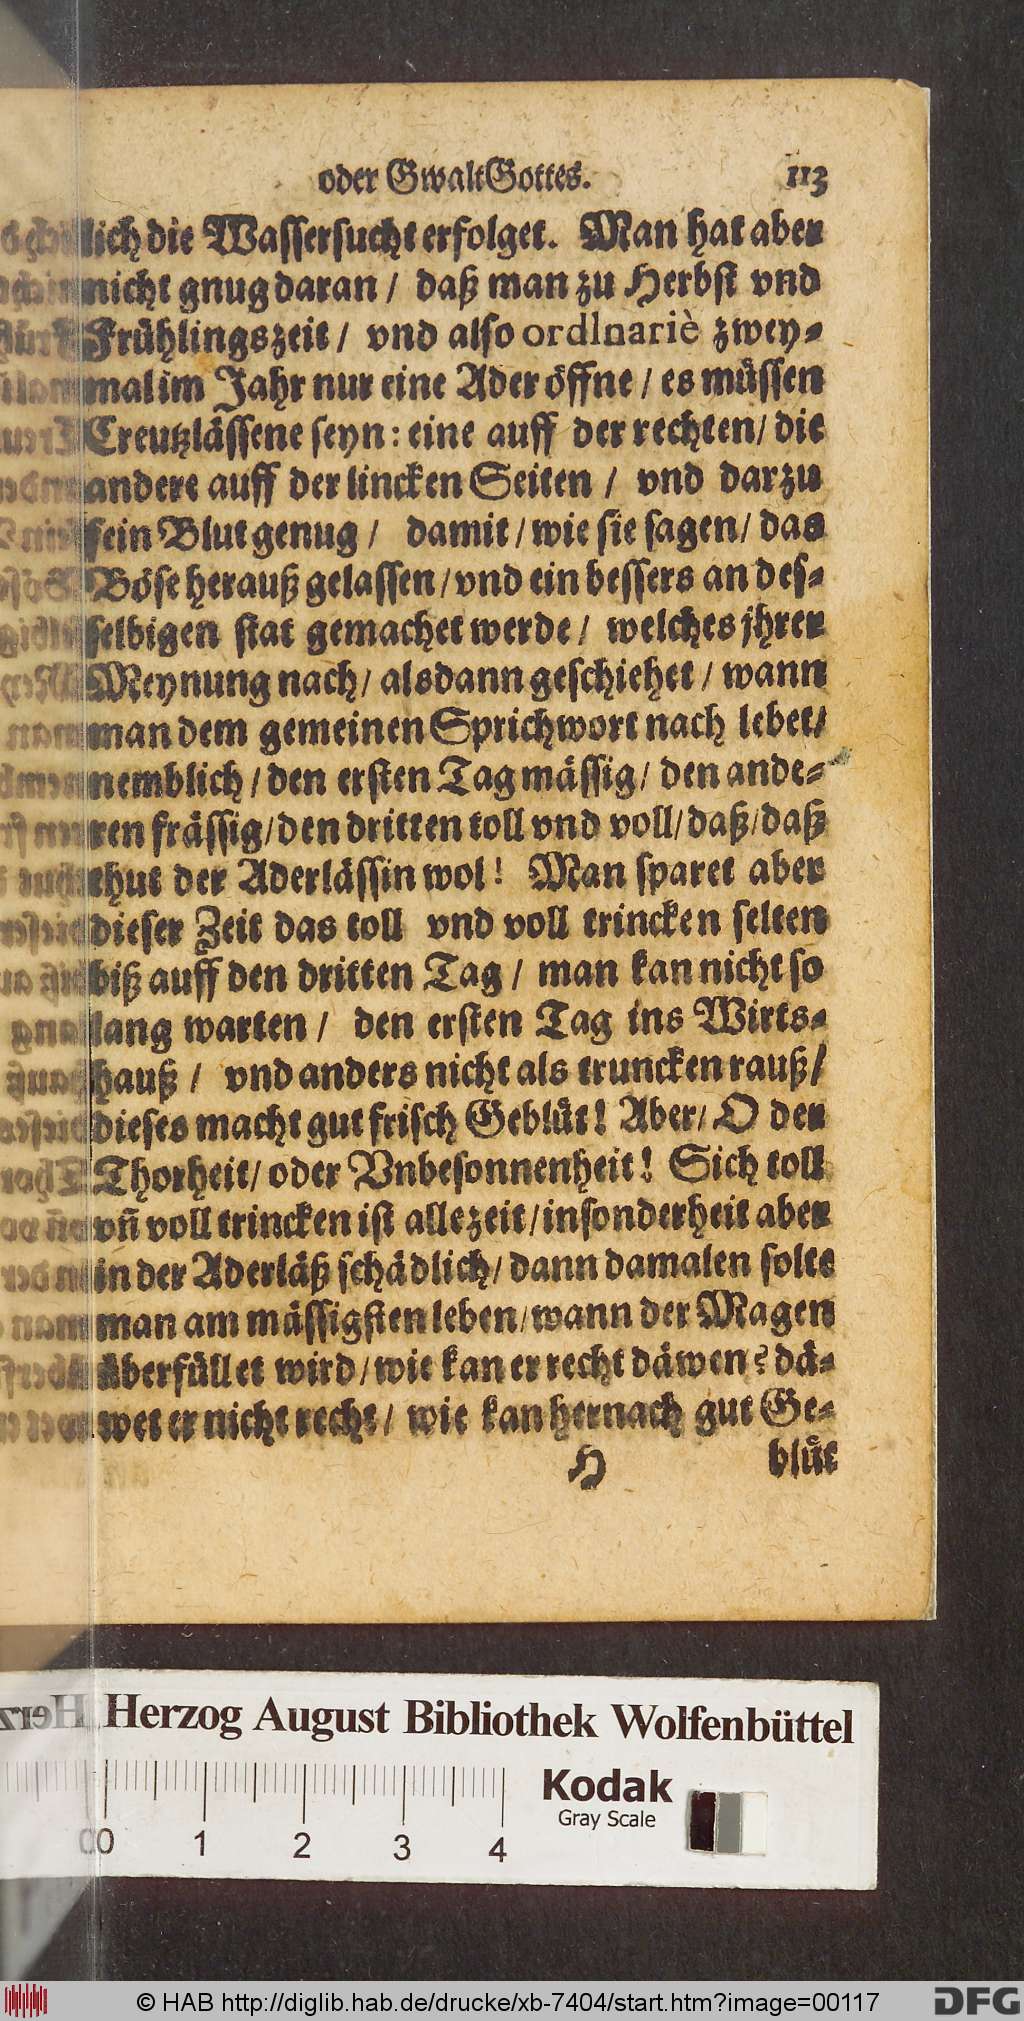 oder GwaltGottes. 113
lich die Wassersucht erfolget. Man hat aber
nicht gnug daran / daß man zu Herbst vnd
Frühlingszeit / vnd also ordlnariè zwey-
mal im Jahr nur eine Ader öffne / es müssen
Creutzlässene seyn: eine auff der rechten / die
andere auff der lincken Seiten / vnd darzu
fein Blut genug / damit / wie sie sagen / das
Böse herauß gelassen / vnd ein bessers an des-
selbigen stat gemachet werde / welches jhrer
Meynung nach / alsdann geschiehet / wann
man dem gemeinen Sprichwort nach lebet /
nemblich / den ersten Tag mässig / den ande-
ren frässig / den dritten toll vnd voll / daß / daß
thut der Aderlässin wol! Man sparet aber
dieser Zeit das toll vnd voll trincken selten
biß auff den dritten Tag / man kan nicht so
lang warten / den ersten Tag ins Wirts-
hauß / vnd anders nicht als truncken rauß /
dieses macht gut frisch Geblüt! Aber / O der
Thorheit / oder Vnbesonnenheit! Sich toll
vñ voll trincken ist allezeit / insonderheit aber
in der Aderläß schädlich / dann damalen solte
man am mässigsten leben / wann der Magen
überfüllet wird / wie kan er recht däwen? dä-
wet er nicht recht / wie kan hernach gut Ge-
H blüt
Herzog August Bibliothek Wolfenbüttel
Kodak
Gray Scale
0 1 2 3 4
© HAB http://diglib.hab.de/drucke/xb-7404/start.htm?image=00117 DFG